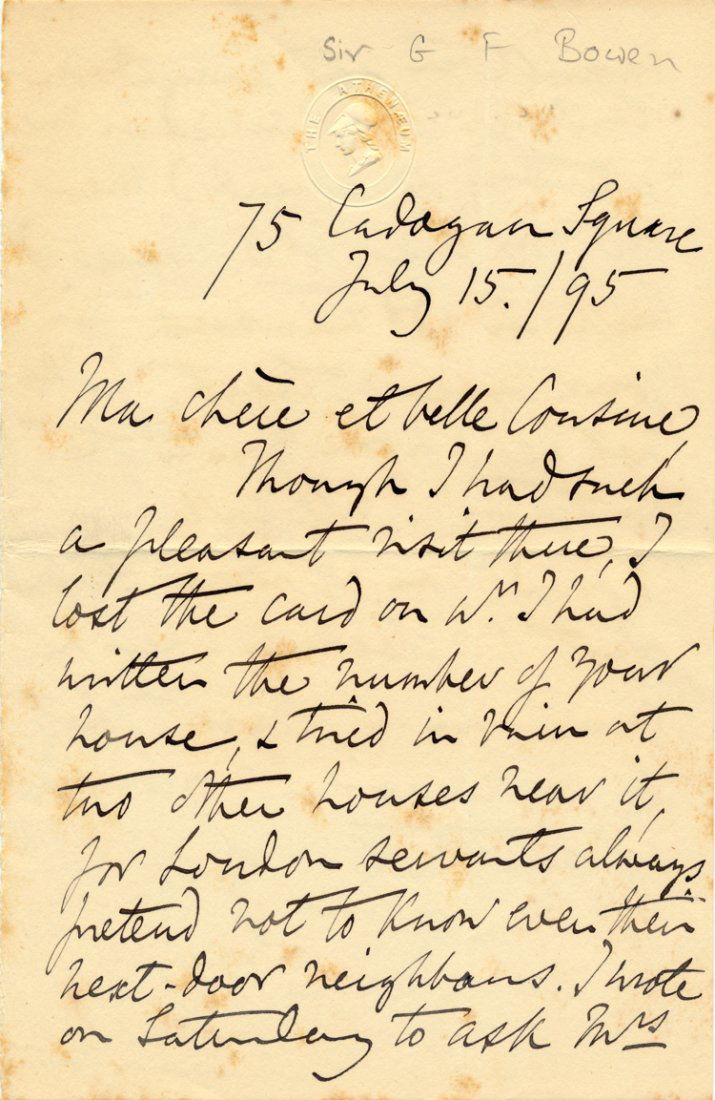 Sir G F Bowen
THE ATHENÆUM
75 Cadogan Square
July 15./95
Ma chère et belle Cousine,
Though I had such
a pleasant visit there, I
lost the card on wh. I had
written the number of your
house, & tried in vain at
two other houses near it,
for London servants always
pretend not to know even their
next-door neighbours. I wrote
on Saturday to ask Mrs